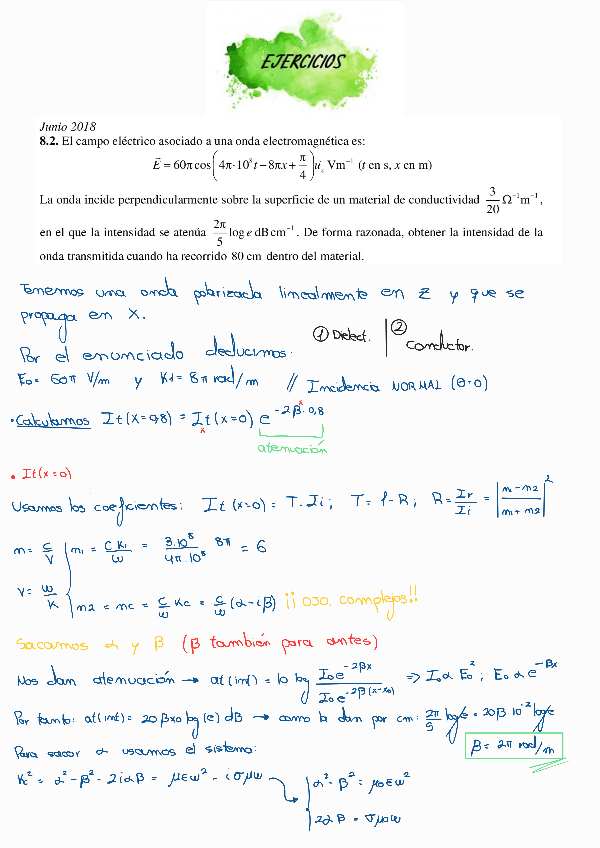 EJERCICIOS
Junio 2018
8.2. El campo eléctrico asociado a una onda electromagnética es:
E⃗ = 60π cos(4π·10⁸ t − 8πx + π/4) u⃗z Vm⁻¹ (t en s, x en m)
La onda incide perpendicularmente sobre la superficie de un material de conductividad 3/20 Ω⁻¹m⁻¹,
en el que la intensidad se atenúa 2π/5 log e dB cm⁻¹. De forma razonada, obtener la intensidad de la
onda transmitida cuando ha recorrido 80 cm dentro del material.
Tenemos una onda polarizada linealmente en z y que se
propaga en X.
① Dielect. | ② Conductor.
Por el enunciado deducimos:
E₀ = 60π V/m y K₁ = 8π rad/m // Incidencia NORMAL (θ=0)
· Calculamos It(x=0,8) = It(x=0) e^(-2β·0,8)
atenuación
• It(x=0)
Usamos los coeficientes: It(x=0) = T·Ii; T = 1-R; R = Ir/Ii = |n1-n2/n1+n2|²
n = c/v n1 = c K1/ω = 3·10⁸/4π·10⁸ 8π = 6
v = ω/K n2 = nc = c/ω Kc = c/ω (α-iβ) ¡¡OJO. complejos!!
Sacamos α y β (β también para antes)
Nos dan atenuación → at(int) = 10 log I₀e^(-2βx)/I₀e^(-2β(x-x₀)) => I₀ α E₀²; E₀ α e^(-βx)
Por tanto: at(int) = 20βx₀ log(e) dB → como la dan por cm: 2π/5 log e = 20β 10⁻² log e
β = 2π rad/m
Para sacar α usamos el sistema:
Kc² = α² - β² - 2iαβ = μεω² - iσμω → α² - β² = μ₀εω²
2αβ = σμ₀ω